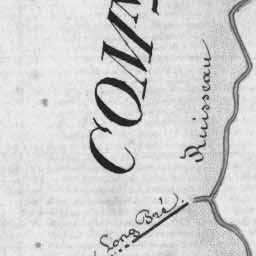 COM
Ruisseau
Long Bré